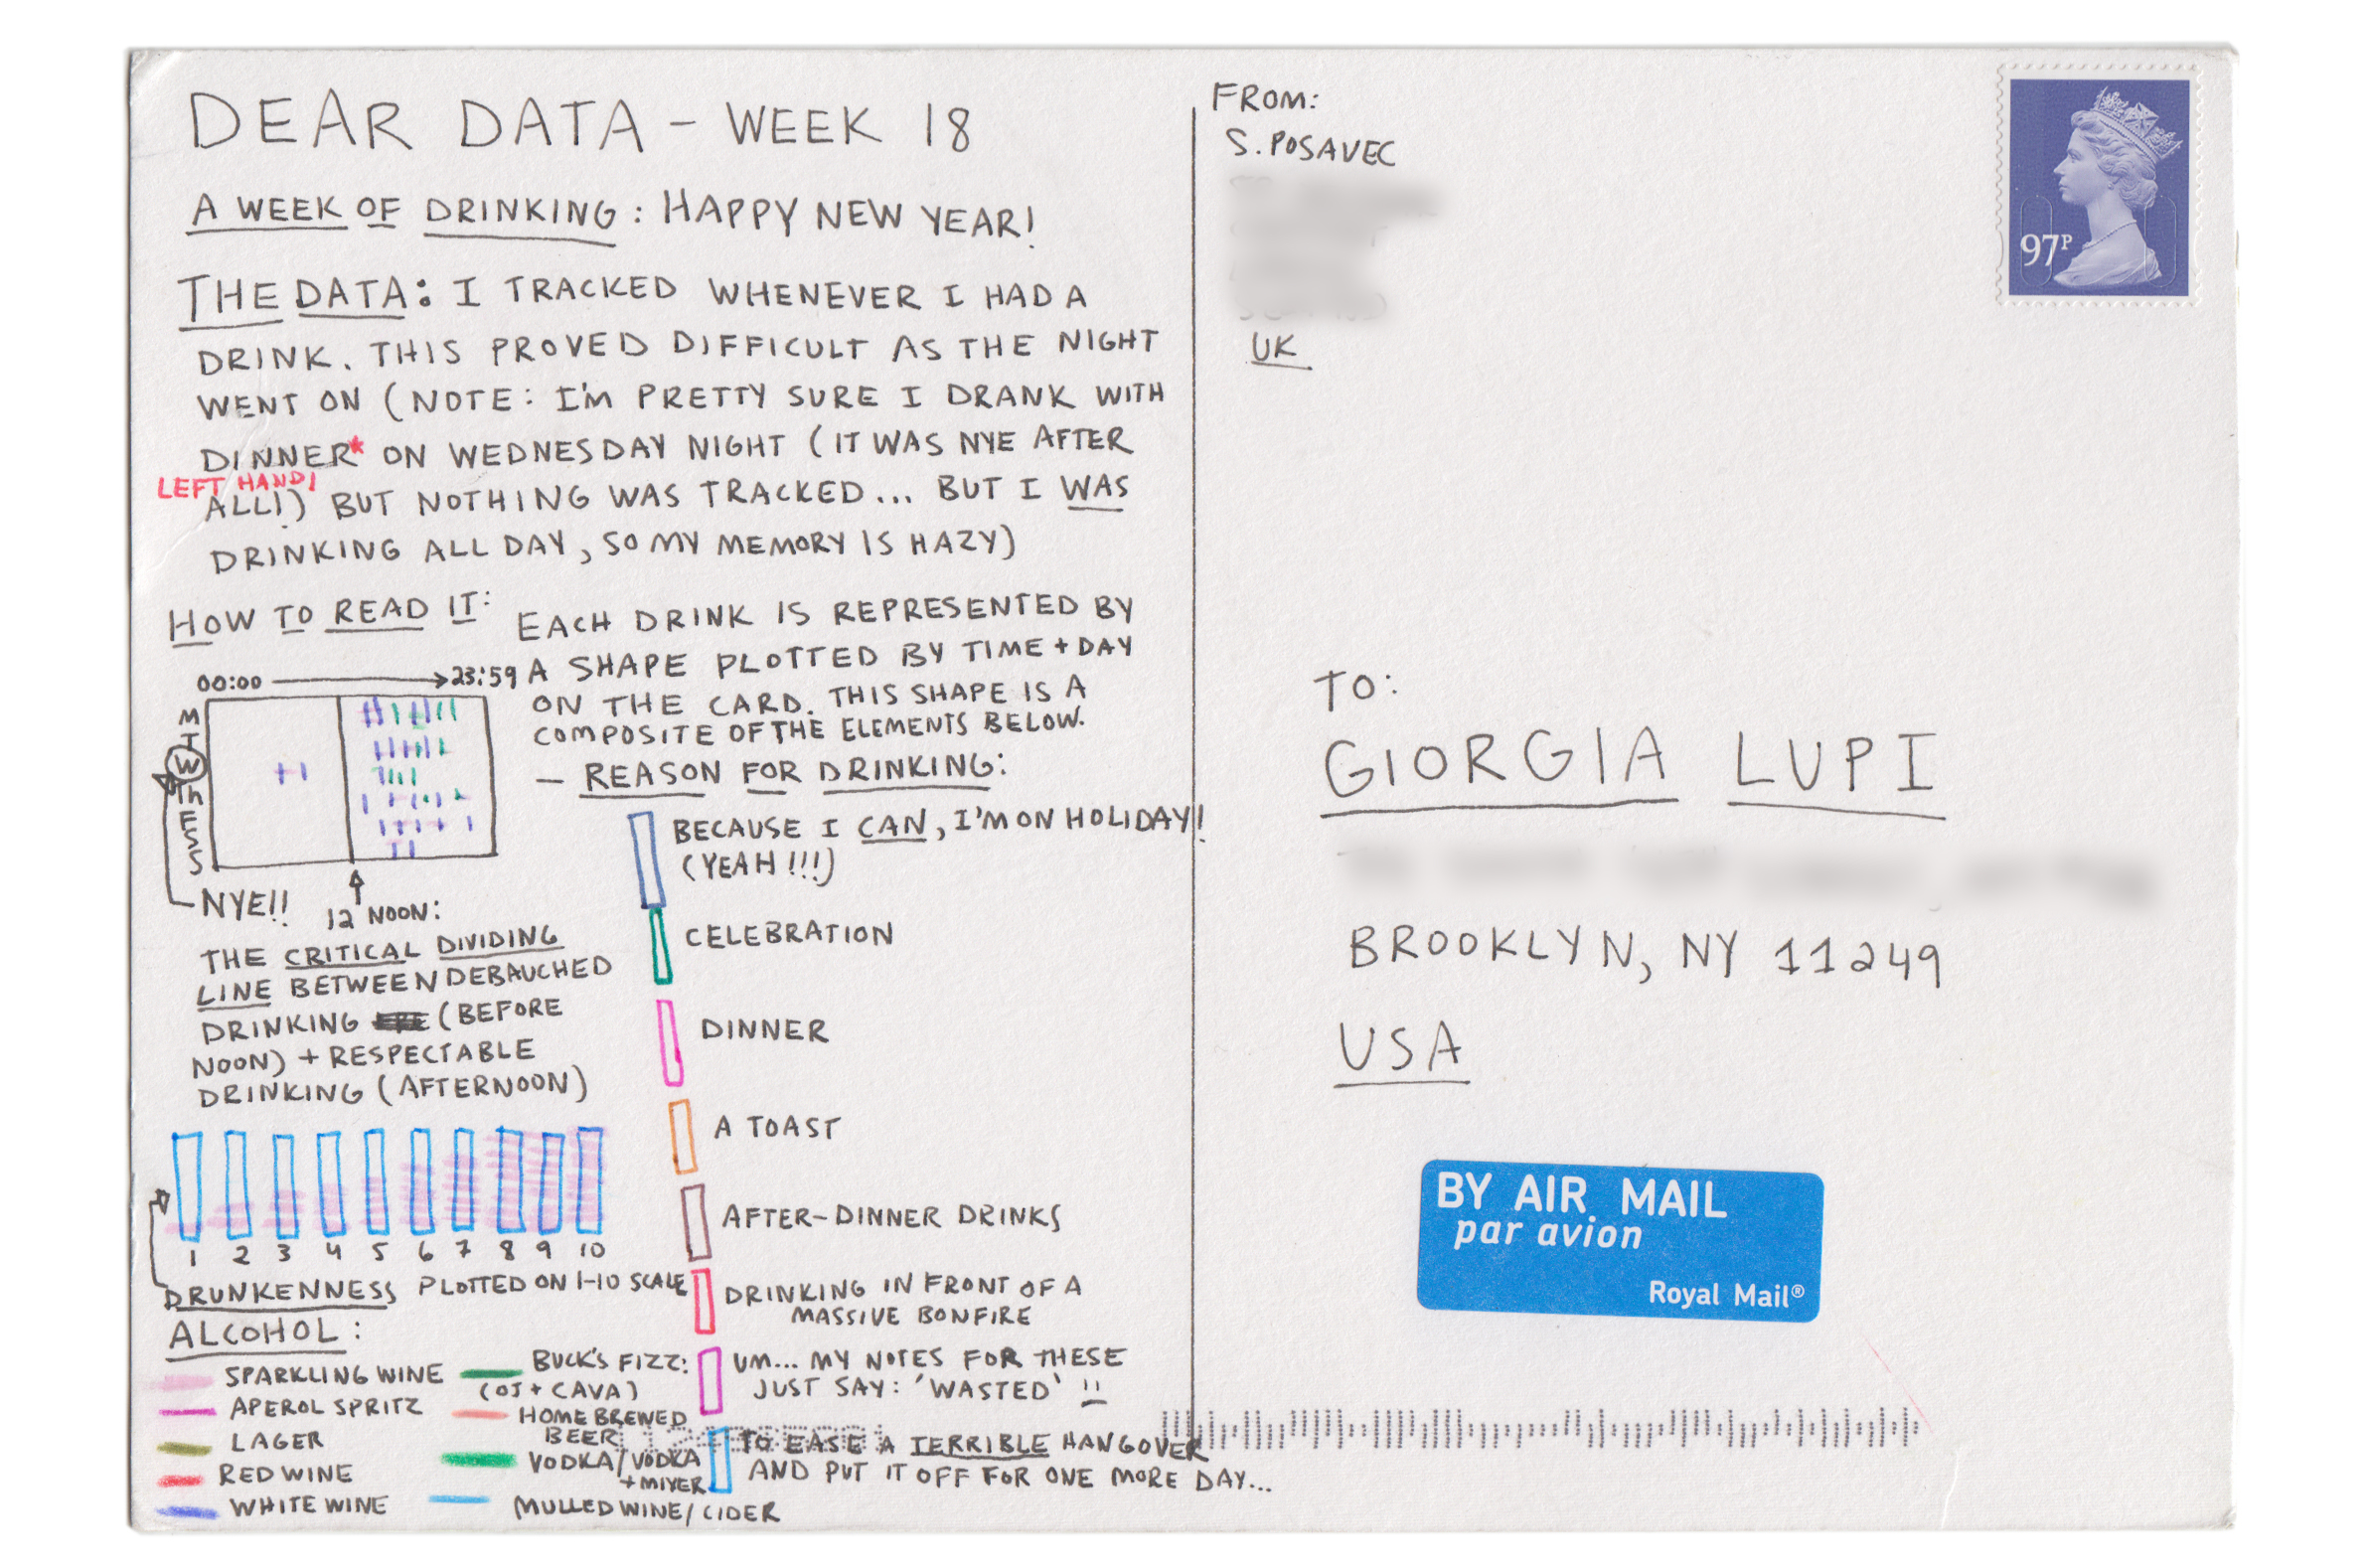 DEAR DATA - WEEK 18
A WEEK OF DRINKING: HAPPY NEW YEAR!
THE DATA: I TRACKED WHENEVER I HAD A
DRINK. THIS PROVED DIFFICULT AS THE NIGHT
WENT ON (NOTE: I'M PRETTY SURE I DRANK WITH
DINNER* ON WEDNESDAY NIGHT (IT WAS NYE AFTER
LEFT HAND!
ALL!) BUT NOTHING WAS TRACKED... BUT I WAS
DRINKING ALL DAY, SO MY MEMORY IS HAZY)
HOW TO READ IT:
EACH DRINK IS REPRESENTED BY
A SHAPE PLOTTED BY TIME + DAY
ON THE CARD. THIS SHAPE IS A
COMPOSITE OF THE ELEMENTS BELOW.
00:00 → 23:59
M
T
W
Th
F
S
S
NYE!!
12 NOON:
THE CRITICAL DIVIDING
LINE BETWEEN DEBAUCHED
DRINKING (BEFORE
NOON) + RESPECTABLE
DRINKING (AFTERNOON)
- REASON FOR DRINKING:
BECAUSE I CAN, I'M ON HOLIDAY!
(YEAH!!!)
CELEBRATION
DINNER
A TOAST
AFTER-DINNER DRINKS
DRINKING IN FRONT OF A
MASSIVE BONFIRE
UM... MY NOTES FOR THESE
JUST SAY: 'WASTED' !!
TO EASE A TERRIBLE HANGOVER
AND PUT IT OFF FOR ONE MORE DAY...
1 2 3 4 5 6 7 8 9 10
DRUNKENNESS PLOTTED ON 1-10 SCALE
ALCOHOL:
SPARKLING WINE
APEROL SPRITZ
LAGER
RED WINE
WHITE WINE
BUCK'S FIZZ:
(OJ + CAVA)
HOME BREWED
BEER
VODKA/VODKA
+ MIXER
MULLED WINE/CIDER
FROM:
S. POSAVEC
UK
97P
TO:
GIORGIA LUPI
BROOKLYN, NY 11249
USA
BY AIR MAIL
par avion
Royal Mail®